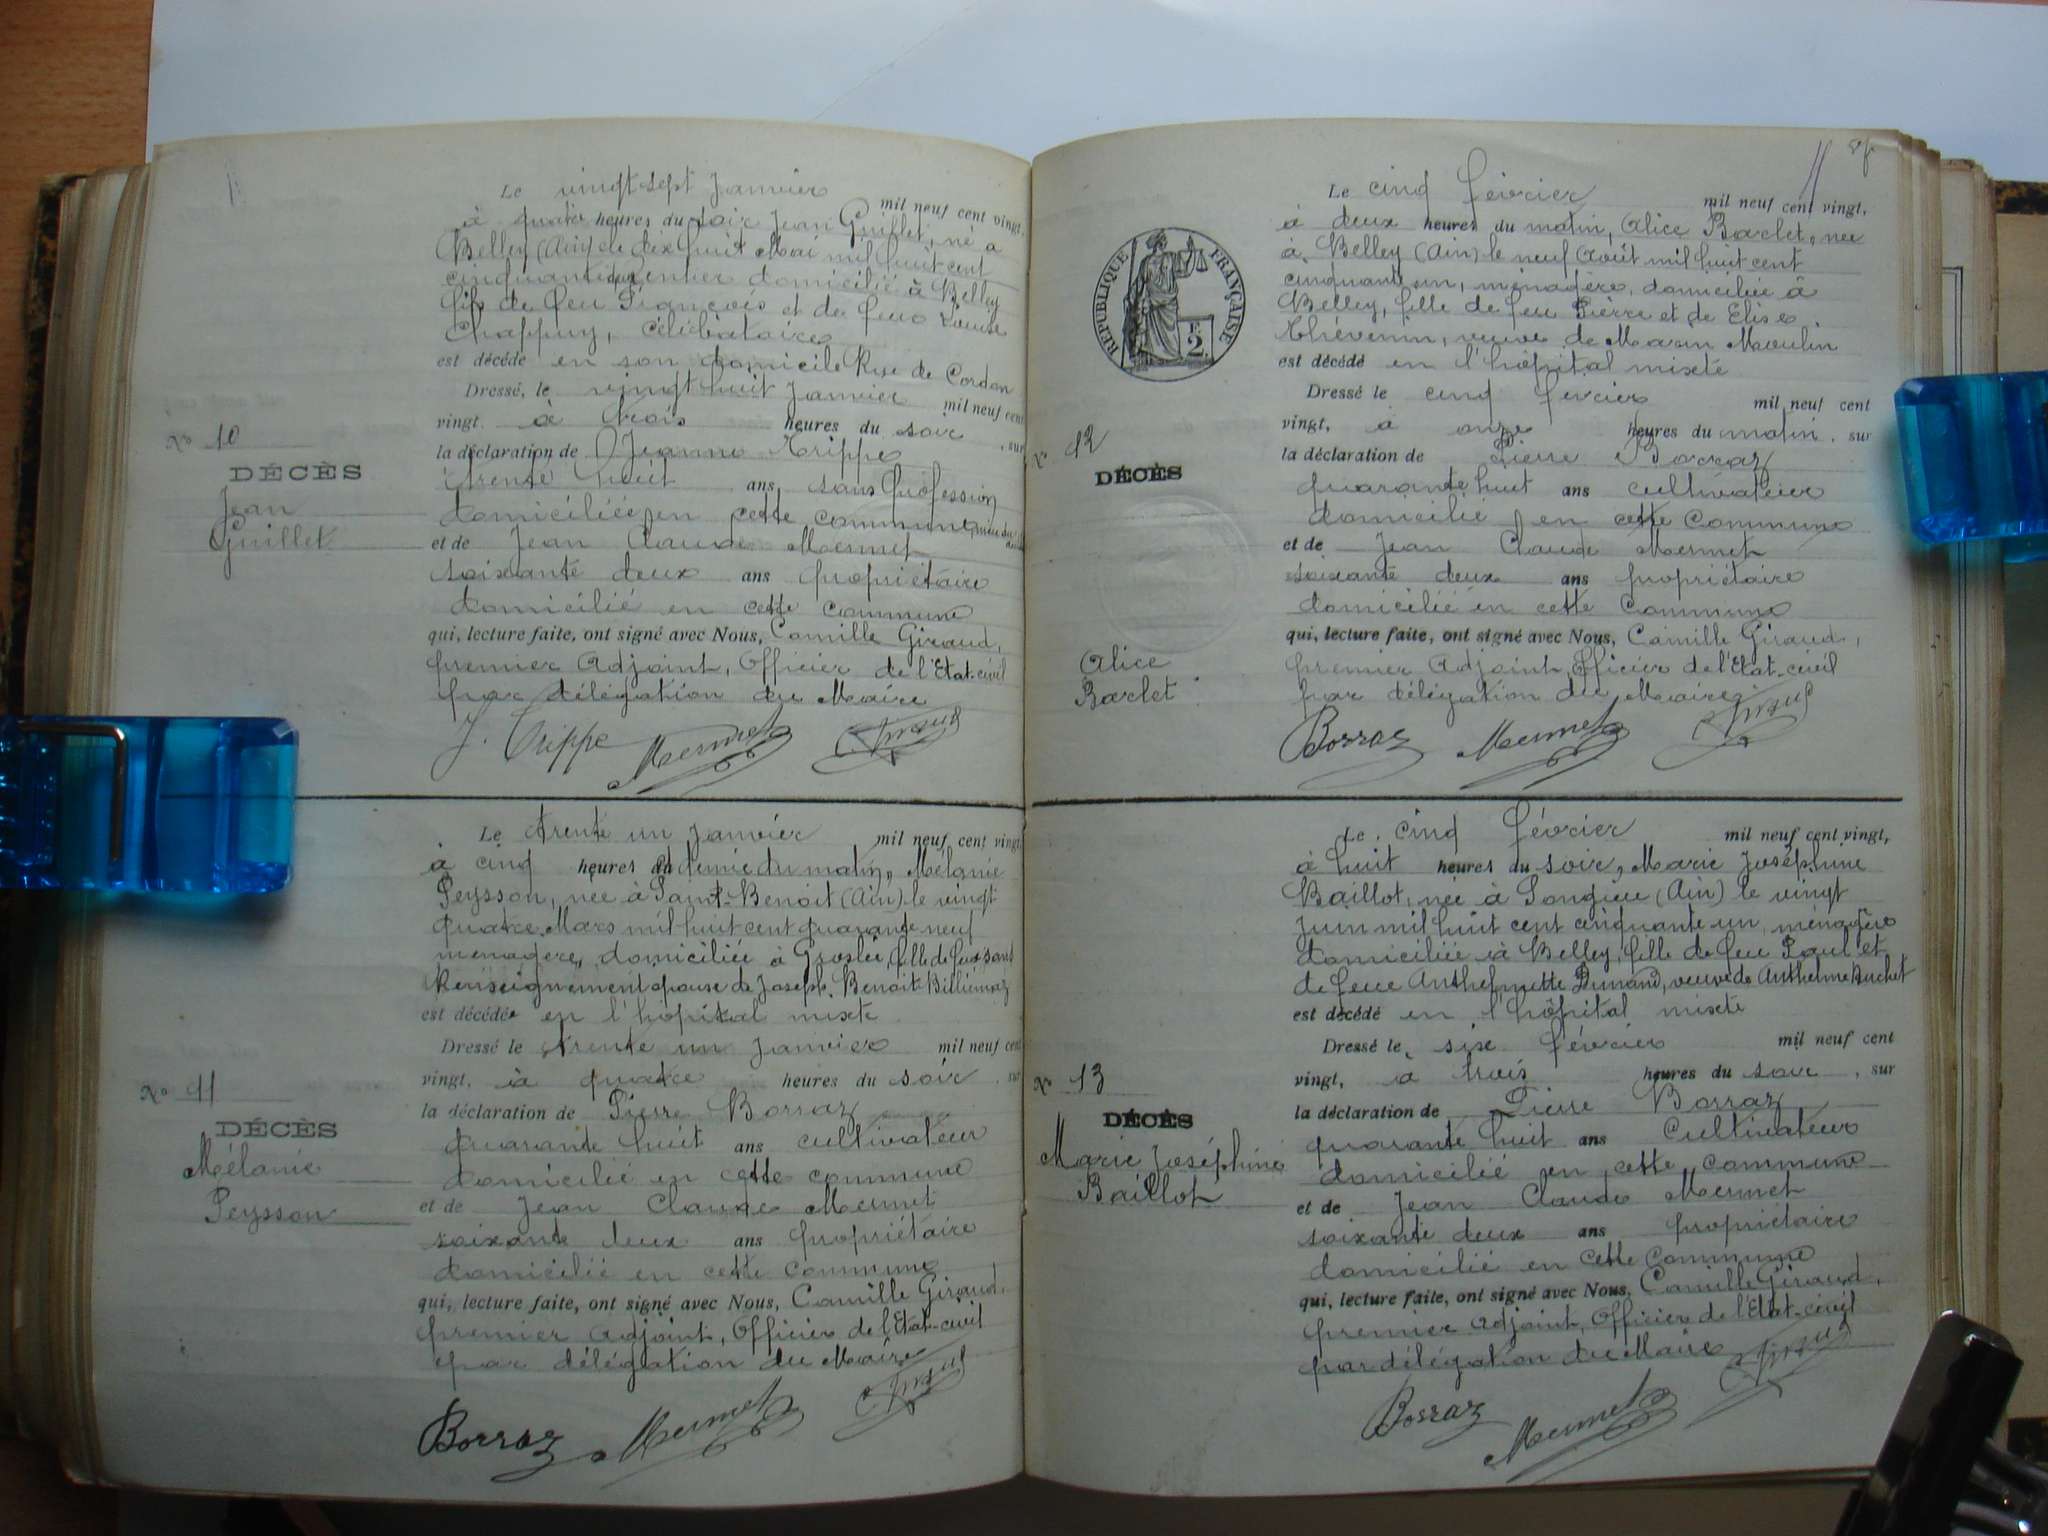 Le vingt sept Janvier mil neuf cent vingt,
à quatre heures du soir Jean Guillet, né à
Belley (Ain) le dix huit Mai mil huit cent
cinquante rentier domicilié à Belley
fils de feu François et de feue Louise
Chappuy, célibataire
est décédé en son domicile Rue de Cordon
Dressé, le vingt huit Janvier mil neuf cent
vingt. à trois heures du soir, sur
la déclaration de Jeanne Trippe
trente huit ans, sans profession
domiciliée en cette commune
et de Jean Claude Mermet
soixante deux ans propriétaire
domicilié en cette commune
qui, lecture faite, ont signé avec Nous, Camille Giraud,
premier Adjoint, Officier de l'Etat-civil
par délégation du Maire
J. Trippe Mermet C. Giraud
No 10
DÉCÈS
Jean
Guillet
Le trente un Janvier mil neuf cent vingt,
à cinq heures demie du matin, Mélanie
Peysson, née à Saint-Benoit (Ain) le vingt
quatre Mars mil huit cent quarante neuf
ménagère, domiciliée à Groslée, fille de sans
Renseignement épouse de Joseph, Benoit Billiemaz
est décédée en l'hôpital mixte
Dressé le trente un Janvier mil neuf cent
vingt, à quatre heures du soir, sur
la déclaration de Pierre Borraz
quarante huit ans cultivateur
domicilié en cette commune
et de Jean Claude Mermet
soixante deux ans propriétaire
domicilié en cette commune
qui, lecture faite, ont signé avec Nous, Camille Giraud,
premier Adjoint, Officier de l'Etat-civil
par délégation du Maire
Borraz Mermet C. Giraud
No 11
DÉCÈS
Mélanie
Peysson
RÉPUBLIQUE FRANÇAISE
F.
2.
Le cinq février mil neuf cent vingt,
à deux heures du matin, Alice Barlet, née
à Belley (Ain) le neuf Août mil huit cent
cinquante un, ménagère, domiciliée à
Belley, fille de feu Pierre et de Elise
Thévenin, veuve de Moulin
est décédé en l'hôpital mixte
Dressé le cinq février mil neuf cent
vingt, à onze heures du matin, sur
la déclaration de Pierre Borraz
quarante huit ans cultivateur
domicilié en cette commune
et de Jean Claude Mermet
soixante deux ans propriétaire
domicilié en cette commune
qui, lecture faite, ont signé avec Nous, Camille Giraud,
premier Adjoint, Officier de l'Etat-civil
par délégation du Maire
Borraz Mermet C. Giraud
No 12
DÉCÈS
Alice
Barlet
Le cinq février mil neuf cent vingt,
à huit heures du soir, Marie Joséphine
Baillot, née à Songieu (Ain) le vingt
Juin mil huit cent cinquante un, ménagère
domiciliée à Belley, fille de feu Paul et
de feue Anthelmette Dunand, veuve de Anthelme Buchet
est décédé en l'hôpital mixte
Dressé le, six février mil neuf cent
vingt, à trois heures du soir, sur
la déclaration de Pierre Borraz
quarante huit ans Cultivateur
domicilié en cette commune
et de Jean Claude Mermet
soixante deux ans propriétaire
domicilié en cette commune
qui, lecture faite, ont signé avec Nous, Camille Giraud,
premier Adjoint, Officier de l'Etat-civil
par délégation du Maire
Borraz Mermet C. Giraud
No 13
DÉCÈS
Marie Joséphine
Baillot